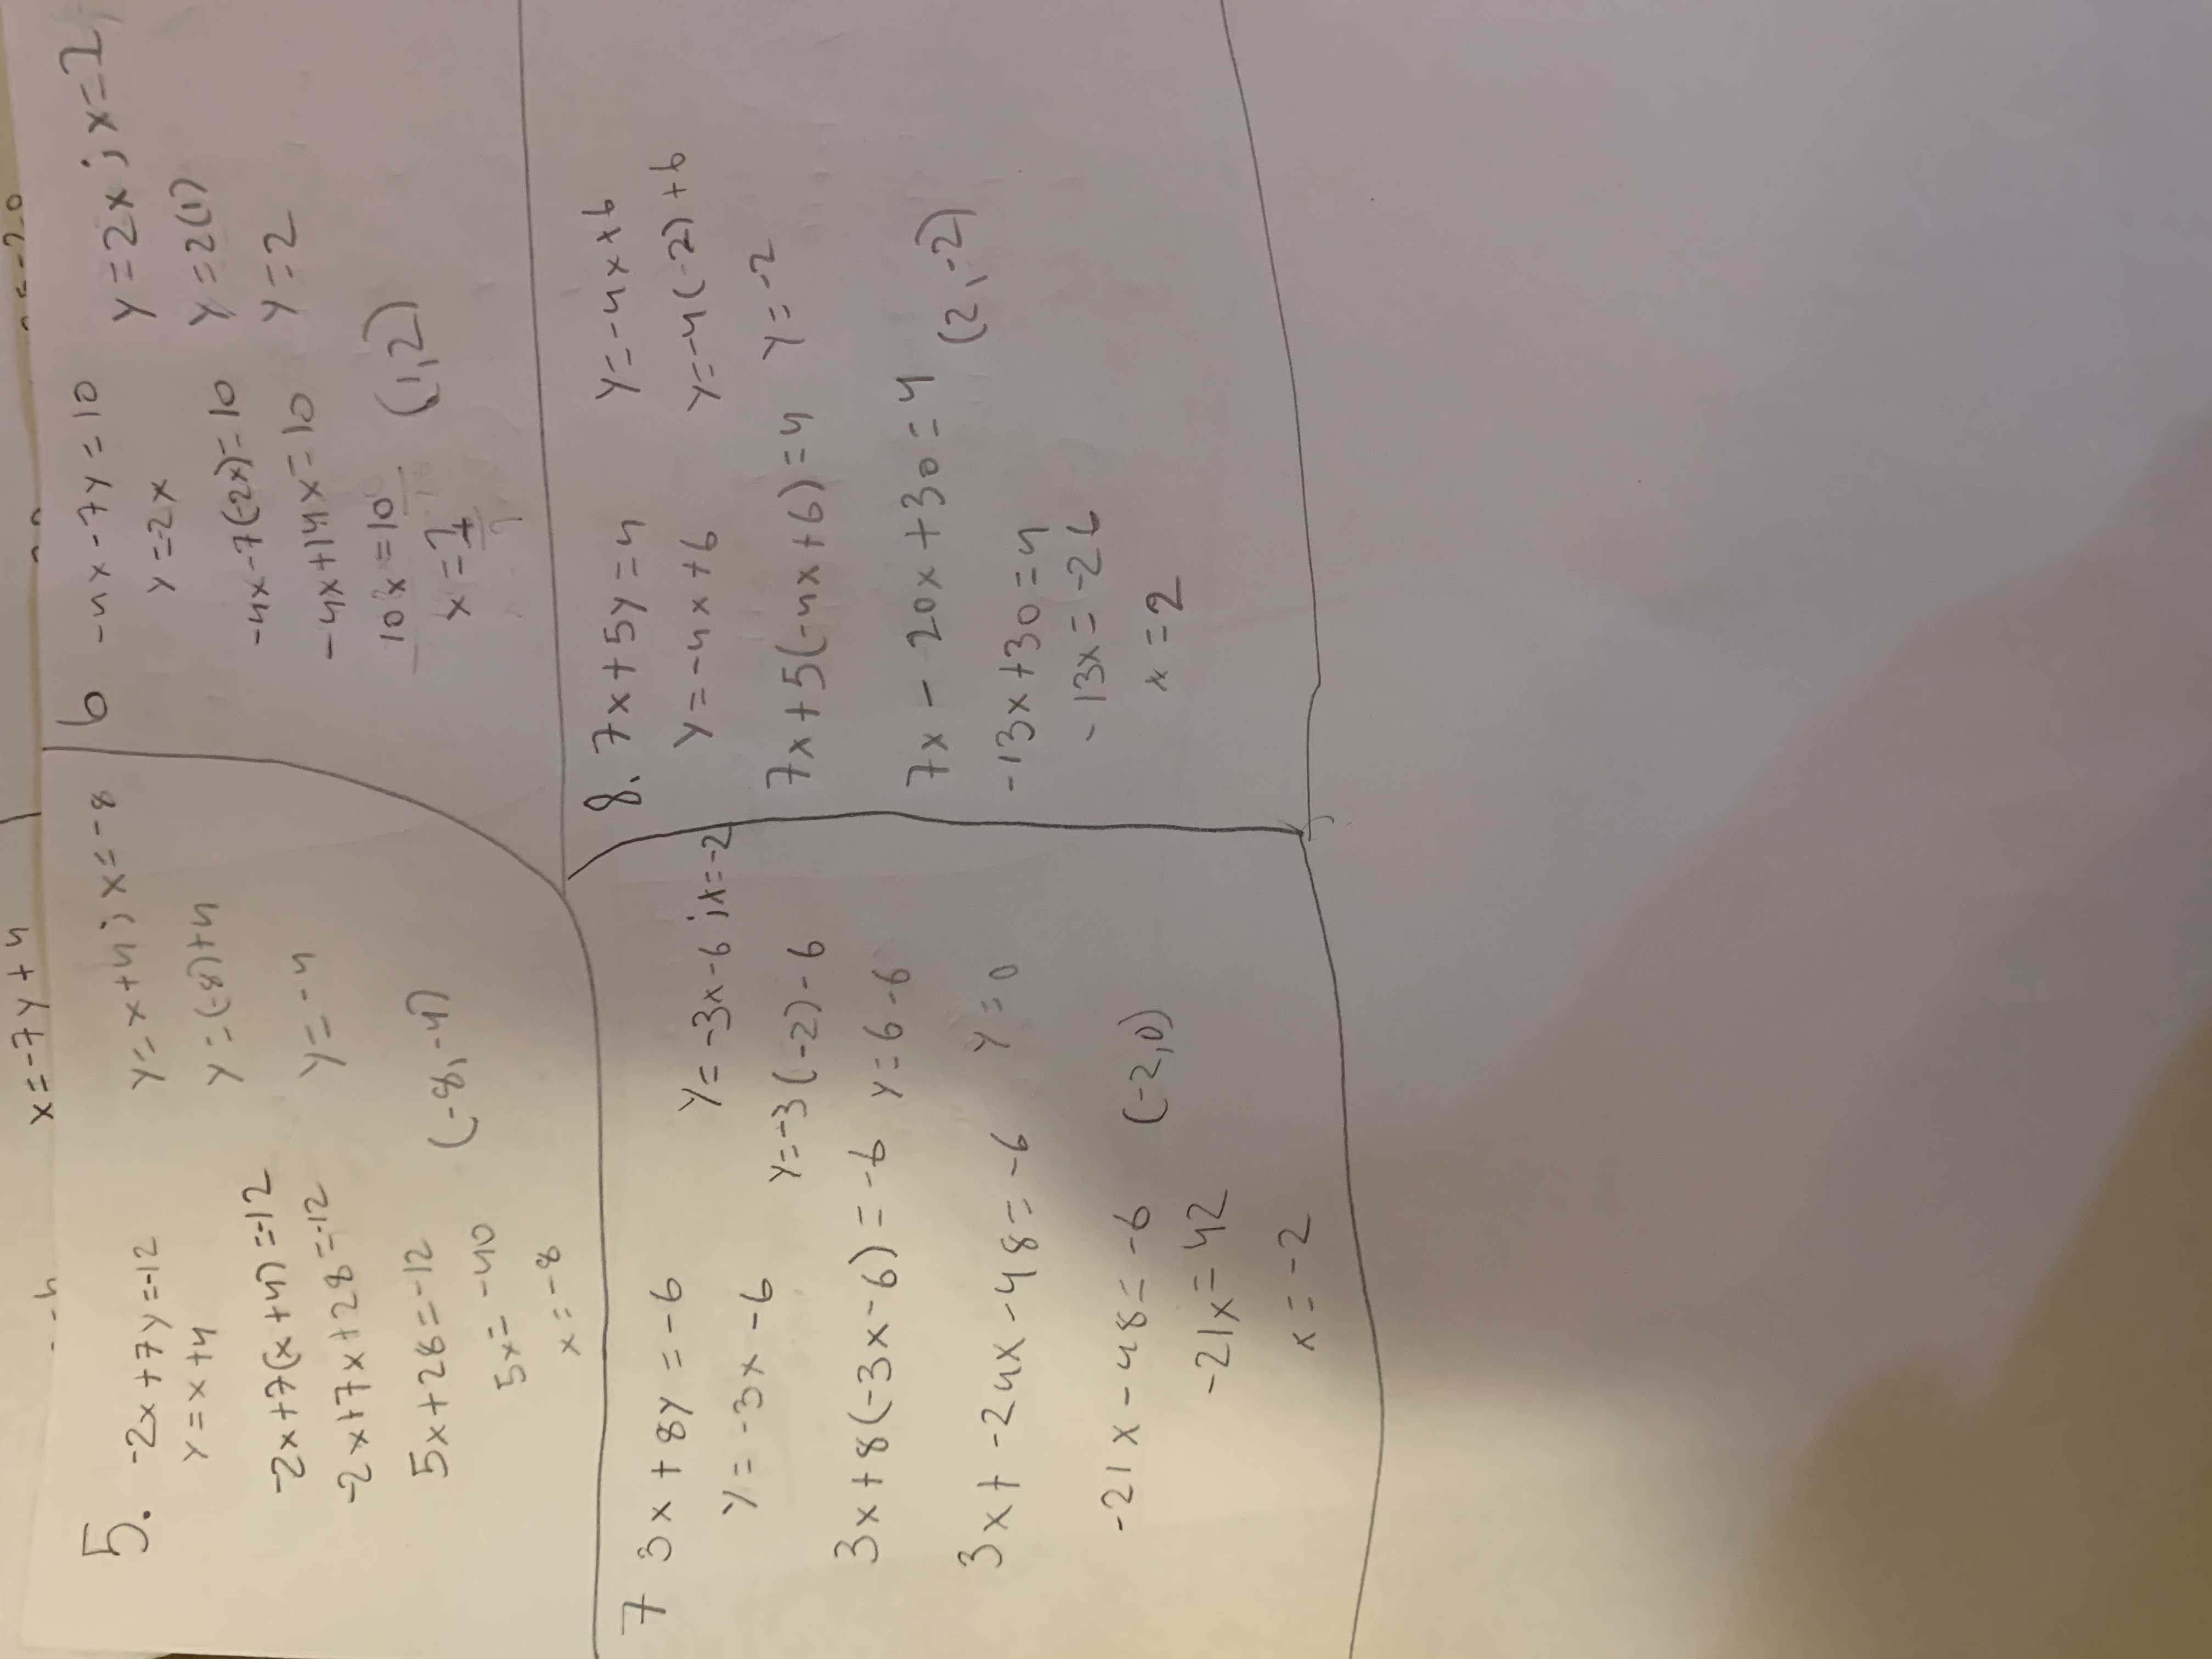 x=-7y+4
5.
-2x+7y=-12
y=x+4
-2x+7(x+4)=-12
-2x+7x+28=-12
5x+28=-12
5x=-40
x=-8
y=x+4;x=-8
y=(-8)+4
y=-4
(-8,-4)
6
-4x-7y=10
y=-2x
-4x-7(-2x)=10
-4x+14x=10
10x=10
x=1
y=2x;x=1
y=2(1)
y=2
(1,2)
7
3x+8y=-6
y=-3x-6
3x+8(-3x-6)=-6
3x+-24x-48=-6
-21x-48=-6
-21x=42
x=-2
y=-3x-6;x=-2
y=-3(-2)-6
y=6-6
y=0
(-2,0)
8. 7x+5y=4
y=-4x+6
7x+5(-4x+6)=4
7x-20x+30=4
-13x+30=4
-13x=-26
x=2
y=-4x+6
y=-4(-2)+6
y=-2
(2,-2)